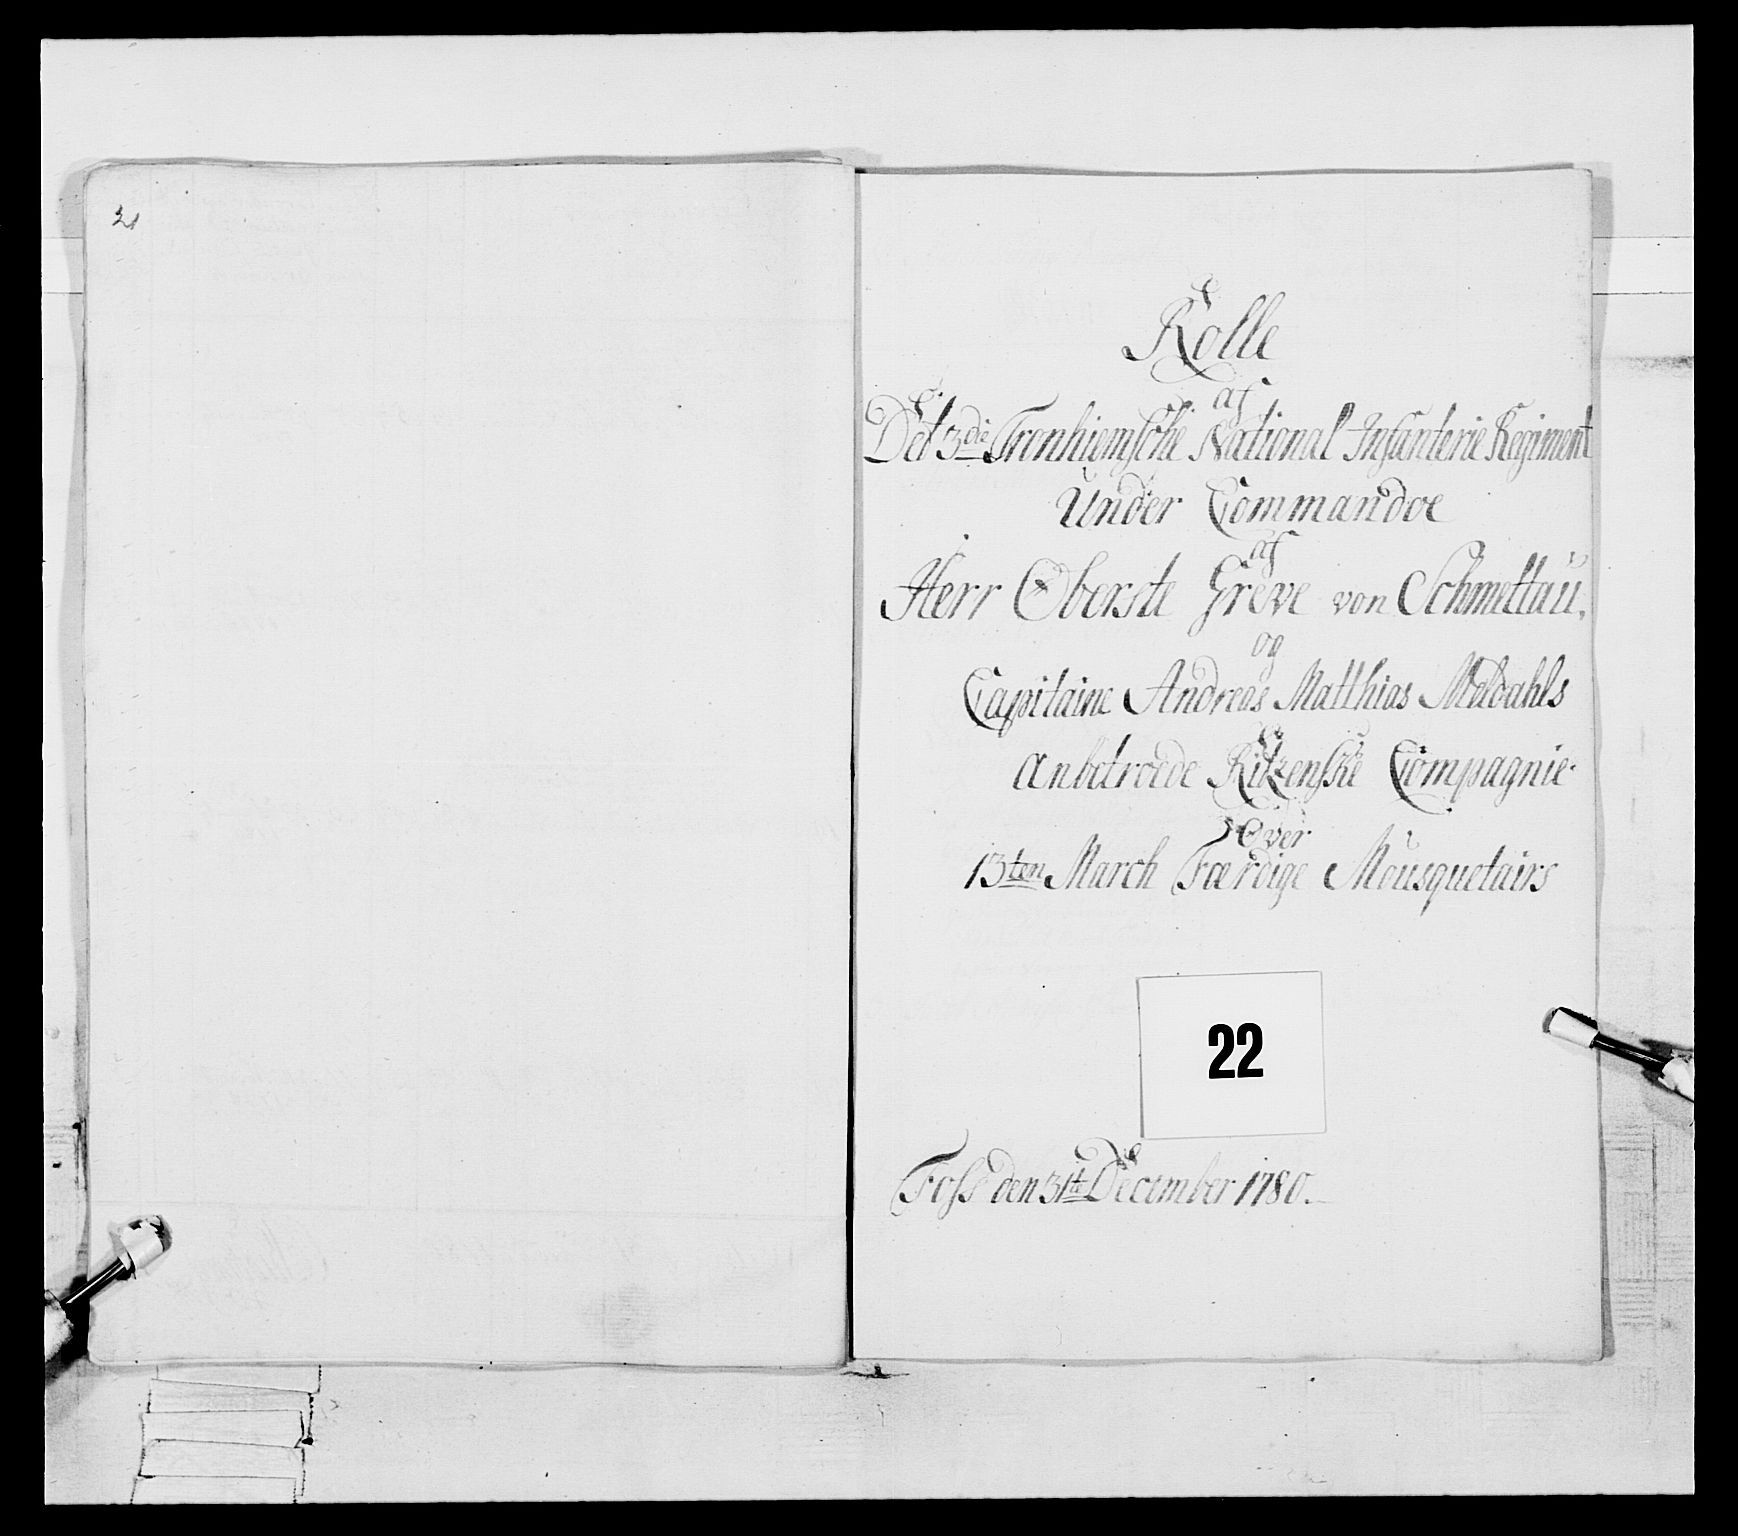 21
Rolle
af
Det 3die Tronhiemsche National Infanterie Regiment
Under Commandoe
af
Herr Oberste Greve von Schmettau,
og
Capitaine Andreas Matthias Meldahls
anbetroede Ritzenske Compagnie
Over
13ten March Færdige Mousquetairs
22
Foss den 31te December 1780.